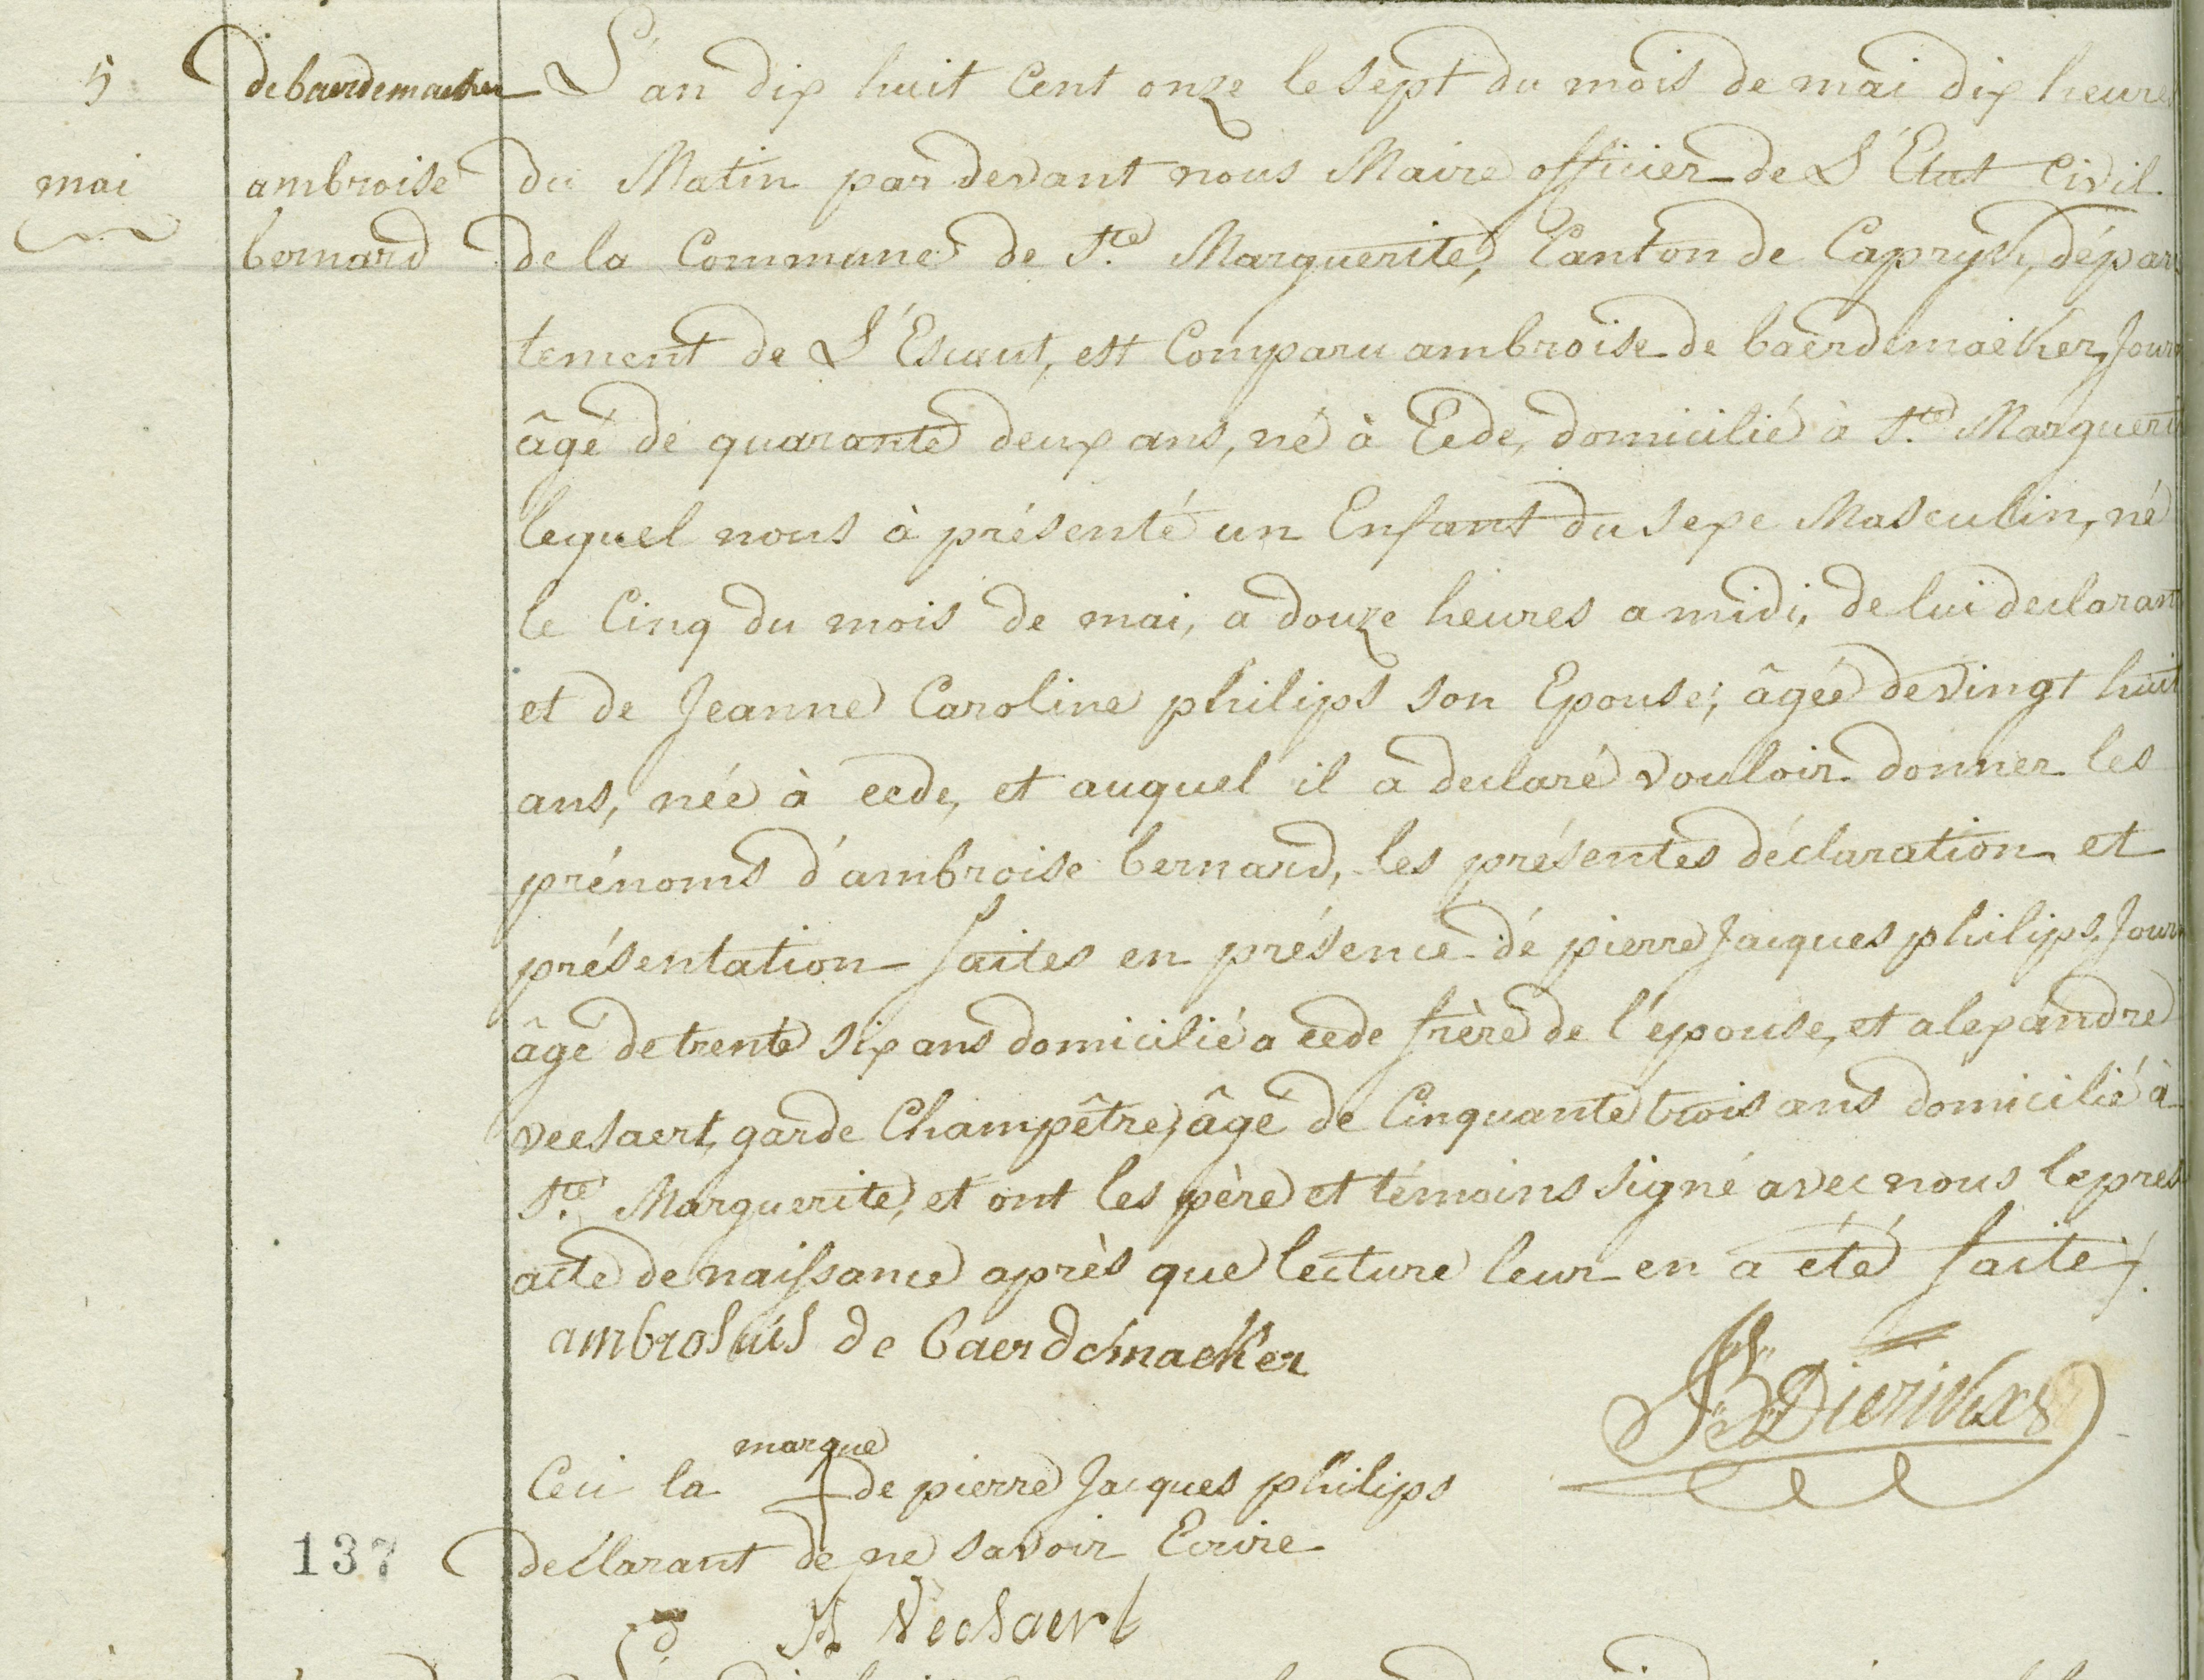 5
mai
debaerdemaeker
ambroise
bernard
L'an dix huit Cent onze le sept du mois de mai dix heures
du Matin par devant nous Maire officier de L'Etat Civil
de la Commune de Ste. Marguerite, Canton de Capryk, dépar
tement de L'Escaut, est Comparu ambroise de baerdemaeker, Jour
âgé de quarante deux ans, né à Eede, domicilié à Ste. Marguerit
lequel nous à présenté un Enfant du sexe Masculin, né
le Cinq du mois de mai, a douze heures a midi, de lui declarant
et de Jeanne Caroline philips son Epouse, âgée de vingt huit
ans, née à eede, et auquel il a declaré vouloir donner les
prénoms d'ambroise bernard, les présentes déclaration et
présentation faites en présence dé pierre Jacques philips, Journ
âgé de trente six ans domicilié a eede frère de l'épouse, et alexandre
veesaert, garde Champêtre, âgé de Cinquante trois ans domicilié à
Ste. Marguerite, et ont les père et témoins signé avec nous le prés
acte de naissance après que lecture leur en a été faite.
ambrosius de baerdemaeker
Dierikx
marque
Ceci la de pierre Jacques philips
declarant de ne savoir Ecrire
137
Veesaert